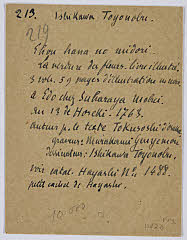 213. Ishikawa Toyonobu.
219
Ehon hana no midori
La verdure des fleurs. Livre illustré
3 vols. 51 pages d'illustration en noir
à Edo chez Suharaya Mohei
an 13 de Horeki. 1763.
auteur p. le texte
graveur: Murakami
dessinateur: Ishikawa Toyonobu.
Voir catal. Hayashi No. 1488.
petit cachet de Hayashi.